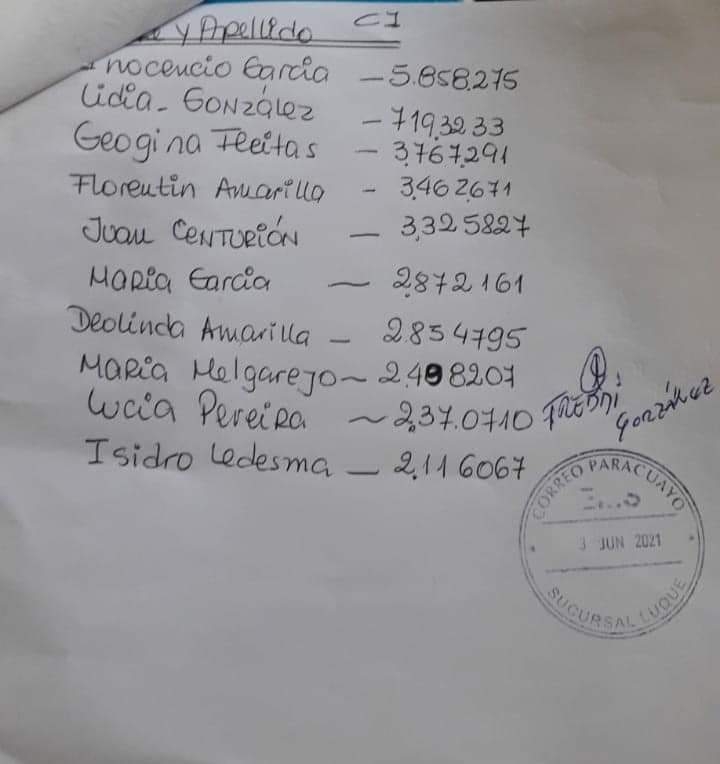 y Apellido CI
Inocencio Garcia - 5.858.275
Lidia - GONZÁLEZ - 719,32 33
Geogina Fleitas - 3,767,291
Florentin Amarilla - 3,462,671
Juan CENTURIÓN - 3,325827
MARIA Garcia - 2,872161
Deolinda Amarilla - 2.854795
MARIA Melgarejo ~ 2,498207
Lucia PEREIRA ~ 2,37.0710
Isidro Ledesma - 2,116067
FREDDI
GONZÁLEZ
CORREO PARAGUAYO
3 JUN 2021
SUCURSAL LUQUE